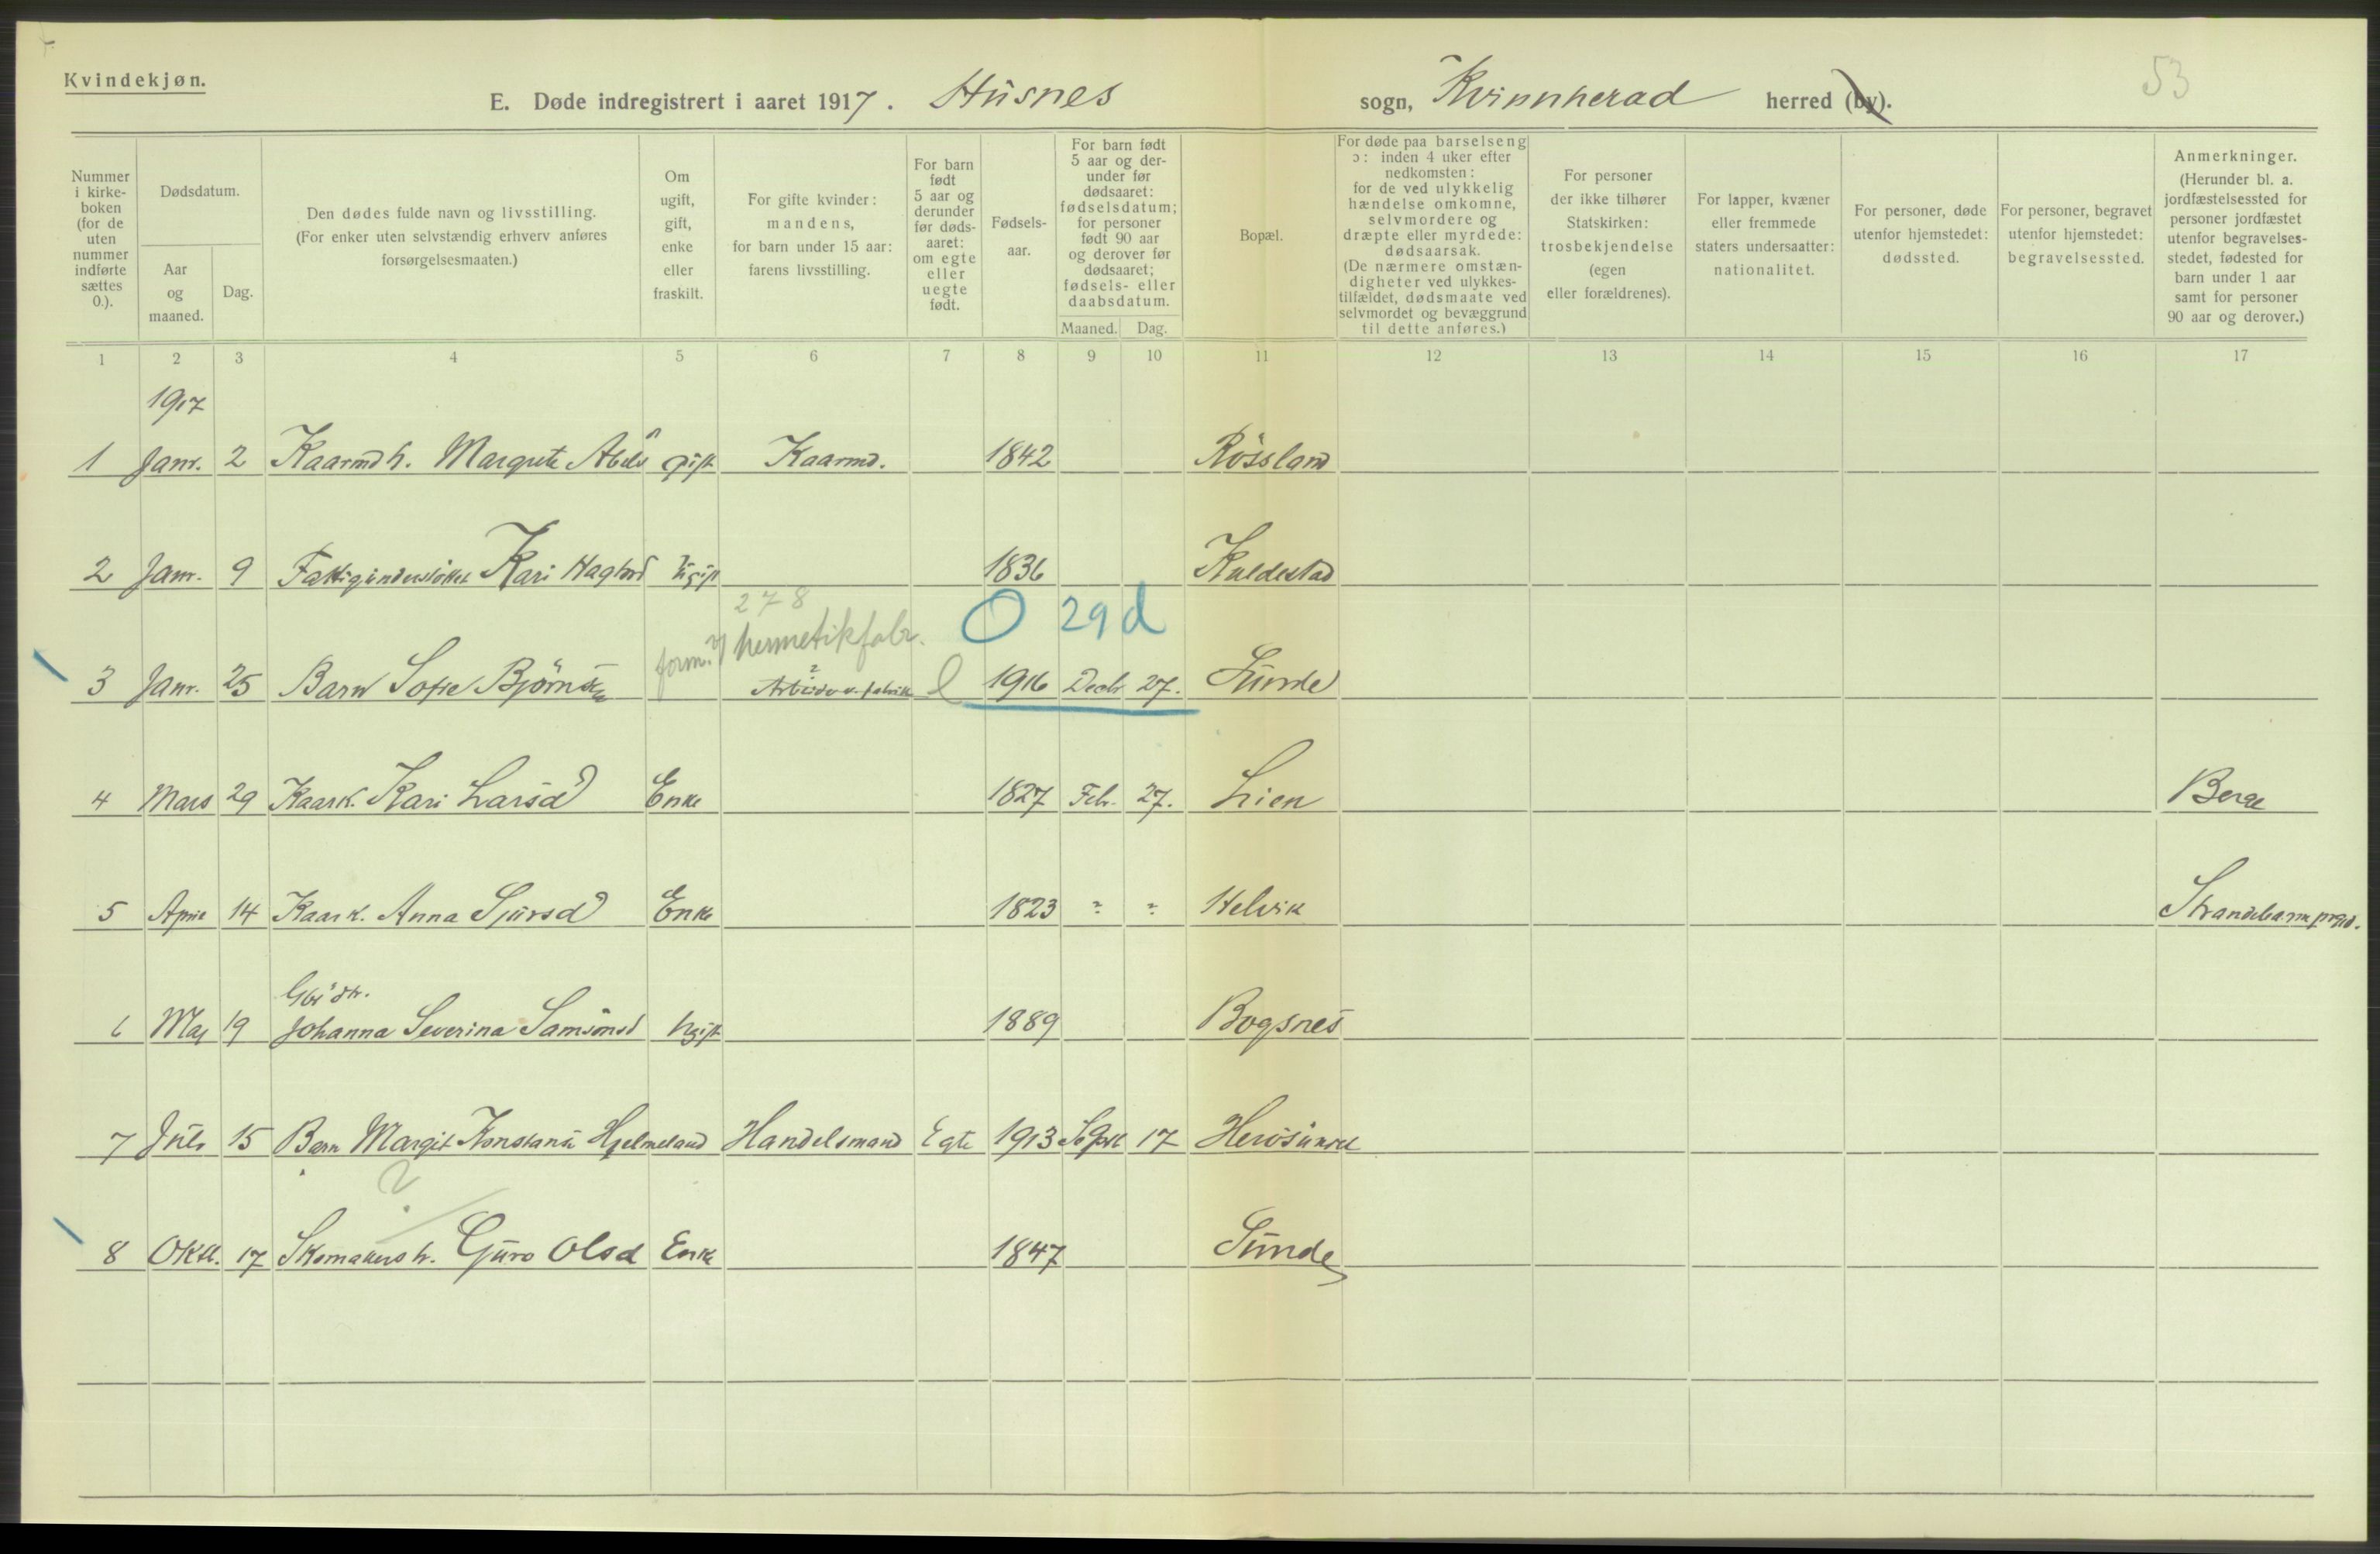 Kvindekjøn.
53
E. Døde indregistrert i aaret 1917. Husnes sogn, Kvinnherad herred (by).
Nummer i kirke-boken (for de uten nummer indførte sættes 0.).
Dødsdatum.
Aar og maaned.
Dag.
Den dødes fulde navn og livsstilling.
(For enker uten selvstændig erhverv anføres forsørgelsesmaaten.)
Om ugift, gift, enke eller fraskilt.
For gifte kvinder: mandens, for barn under 15 aar: farens livsstilling.
For barn født 5 aar og derunder før døds-aaret: om egte eller uegte født.
Fødsels-aar.
For barn født 5 aar og der-under før dødsaaret: fødselsdatum; for personer født 90 aar og derover før dødsaaret; fødsels- eller daabsdatum.
Maaned.
Dag.
Bopæl.
For døde paa barselseng ɔ: inden 4 uker efter nedkomsten: for de ved ulykkelig hændelse omkomne, selvmordere og dræpte eller myrdede: dødsaarsak. (De nærmere omstæn-digheter ved ulykkes-tilfældet, dødsmaate ved selvmordet og bevæggrund til dette anføres.)
For personer der ikke tilhører Statskirken: trosbekjendelse (egen eller forældrenes).
For lapper, kvæner eller fremmede staters undersaatter: nationalitet.
For personer, døde utenfor hjemstedet: dødssted.
For personer, begravet utenfor hjemstedet: begravelsessted.
Anmerkninger. (Herunder bl. a. jordfæstelsessted for personer jordfæstet utenfor begravelses-stedet, fødested for barn under 1 aar samt for personer 90 aar og derover.)
1 2 3 4 5 6 7 8 9 10 11 12 13 14 15 16 17
1917
1 Janr. 2 Kaarmd h. Margrete Abels gift Kaarmd. 1842 Røssland
2 Janr. 9 Fattigunderstøttet Kari ugift 1836 Kuldestad
278
0 29 d
form. hermetikfabr.
3 Janr. 25 Barn Sofie Bjørnsen ? Arbeider v. fabrik 1916 Decbr 27. Sunde
4 Mars 29 Kaark. Kari Larsd Enke 1827 Febr. 27. Lien Berge
5 April 14 Kaark. Anna Sjursd Enke 1823 ? ? Helvik Strandebarm prgd.
Gbr dtr.
6 Maj 19 Johanna Severina Samsonsd ugift 1889 Bogsnes
7 Juli 15 Barn Margit Konstanse Hjelmeland Handelsmand Egte 1913 Septbr 17 Herøsundet
?
8 Oktb. 17 Skomakers h. Guro Olsd Enke 1847 Sunde